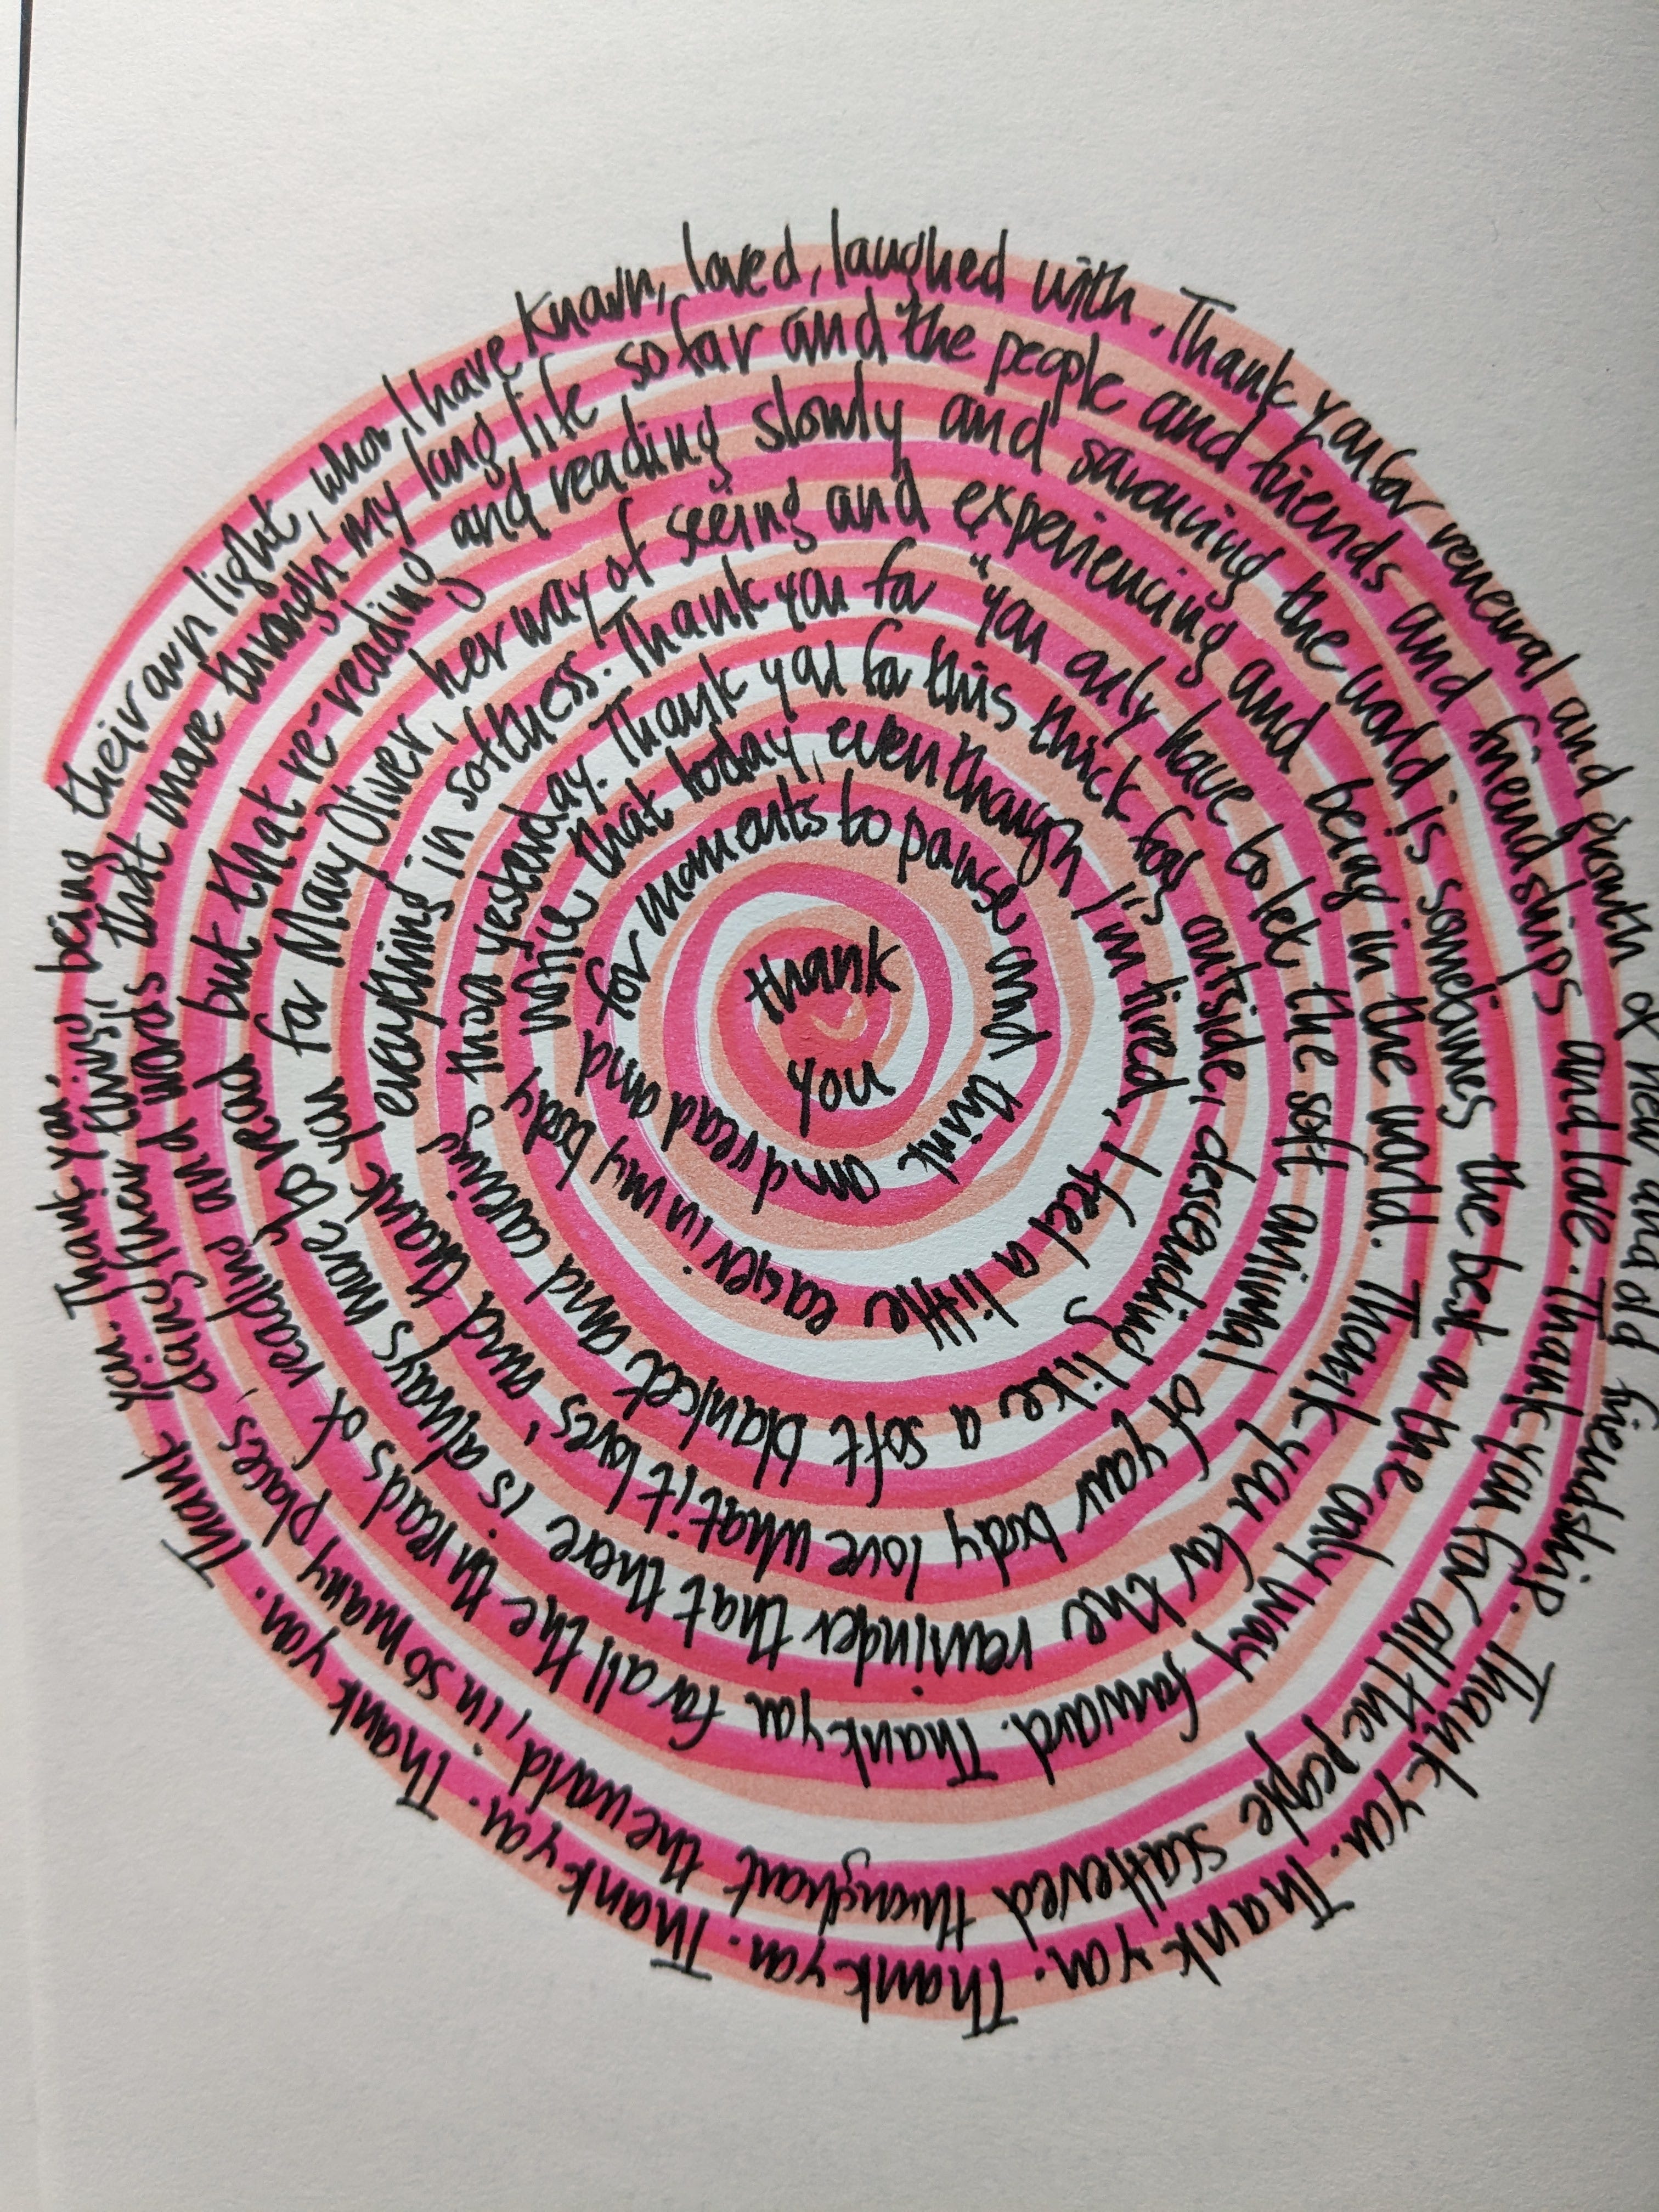 thank you
for moments to pause and think and read and read and while that today, even though I'm tired, I feel a little easier in my body than yesterday. Thank you for this thick fog outside, descending like a soft blanket and covering everything in softness. Thank you for "you only have to let the soft animal of your body love what it loves" and thank you for Mary Oliver, her way of seeing and experiencing and being in the world. Thank you for the reminder that there is always more to read but that re-reading and reading slowly and savouring the world is sometimes the best or the only way forward. Thank you for all the threads of reading and words that move through my long life so far and the people and friends and friendships and love. Thank you for all the people scattered throughout the world, in so many places, doing their things, being their own light, whom I have known, loved, laughed with. Thank you for renewal and growth of new and old friendship. Thank you. Thank you. Thank you. Thank you. Thank you. Thank you. Thank you.